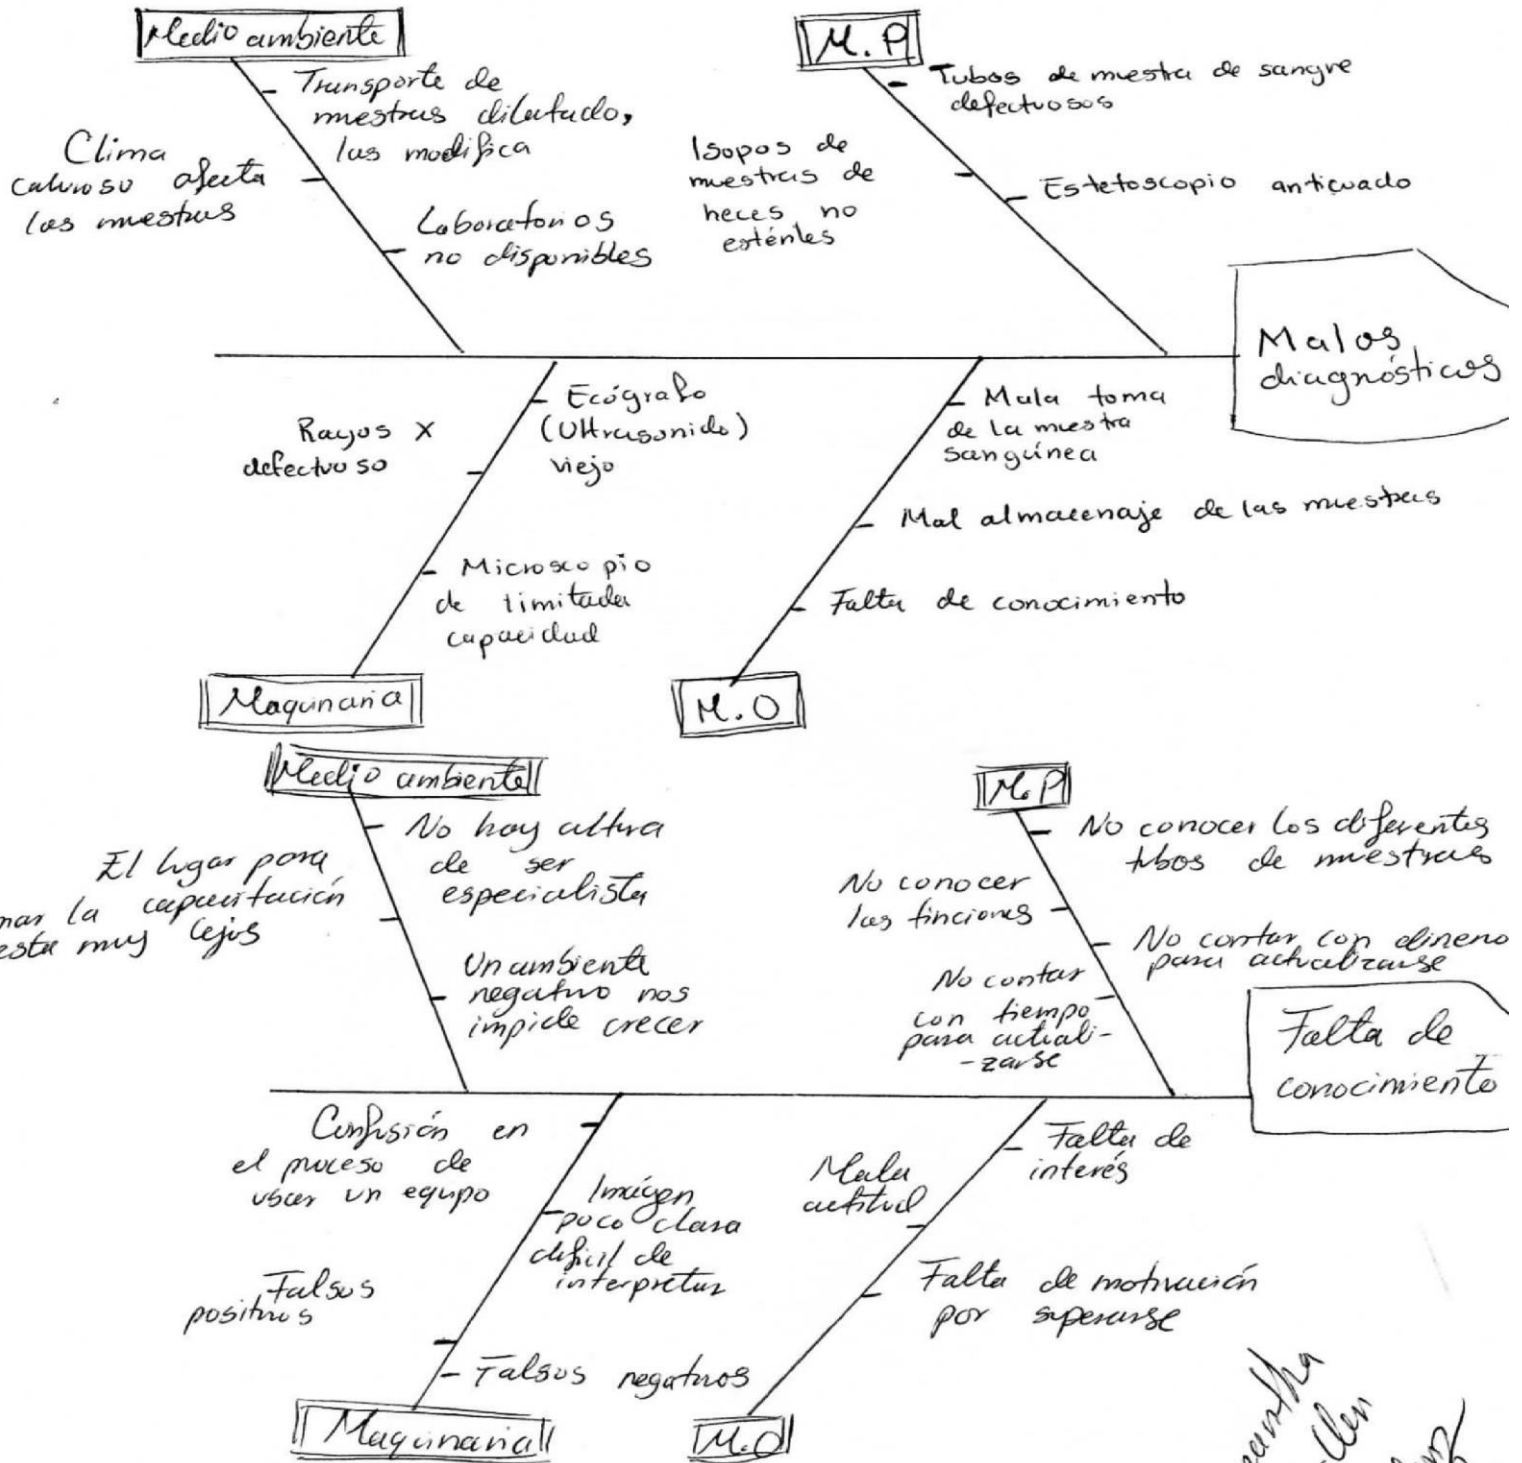 Medio ambiente
Transporte de
muestras dilatado,
las modifica
Clima
caluroso afecta
las muestras
Laboratorios
no disponibles
M.P
Tubos de muestra de sangre
defectuosos
Isopos de
muestras de
heces no
estériles
Estetoscopio anticuado
Malos
diagnósticos
Rayos X
defectuoso
Ecógrafo
(Ultrasonido)
viejo
Microscopio
de limitada
capacidad
Maquinaria
Mala toma
de la muestra
sanguínea
Mal almacenaje de las muestras
Falta de conocimiento
M.O
Medio ambiente
No hay cultura
de ser
especialista
El lugar para
la capacitación
esta muy lejos
Un ambiente
negativo nos
impide crecer
M.P
No conocer los diferentes
tubos de muestras
No conocer
las funciones
No contar con dinero
para actualizarse
No contar
con tiempo
para actuali-
-zarse
Falta de
conocimiento
Confusión en
el proceso de
usar un equipo
Imágen
poco clara
dificil de
interpretar
Falsos
positivos
Falsos negativos
Maquinaria
Falta de
interés
Mala
actitud
Falta de motivación
por superarse
M.O